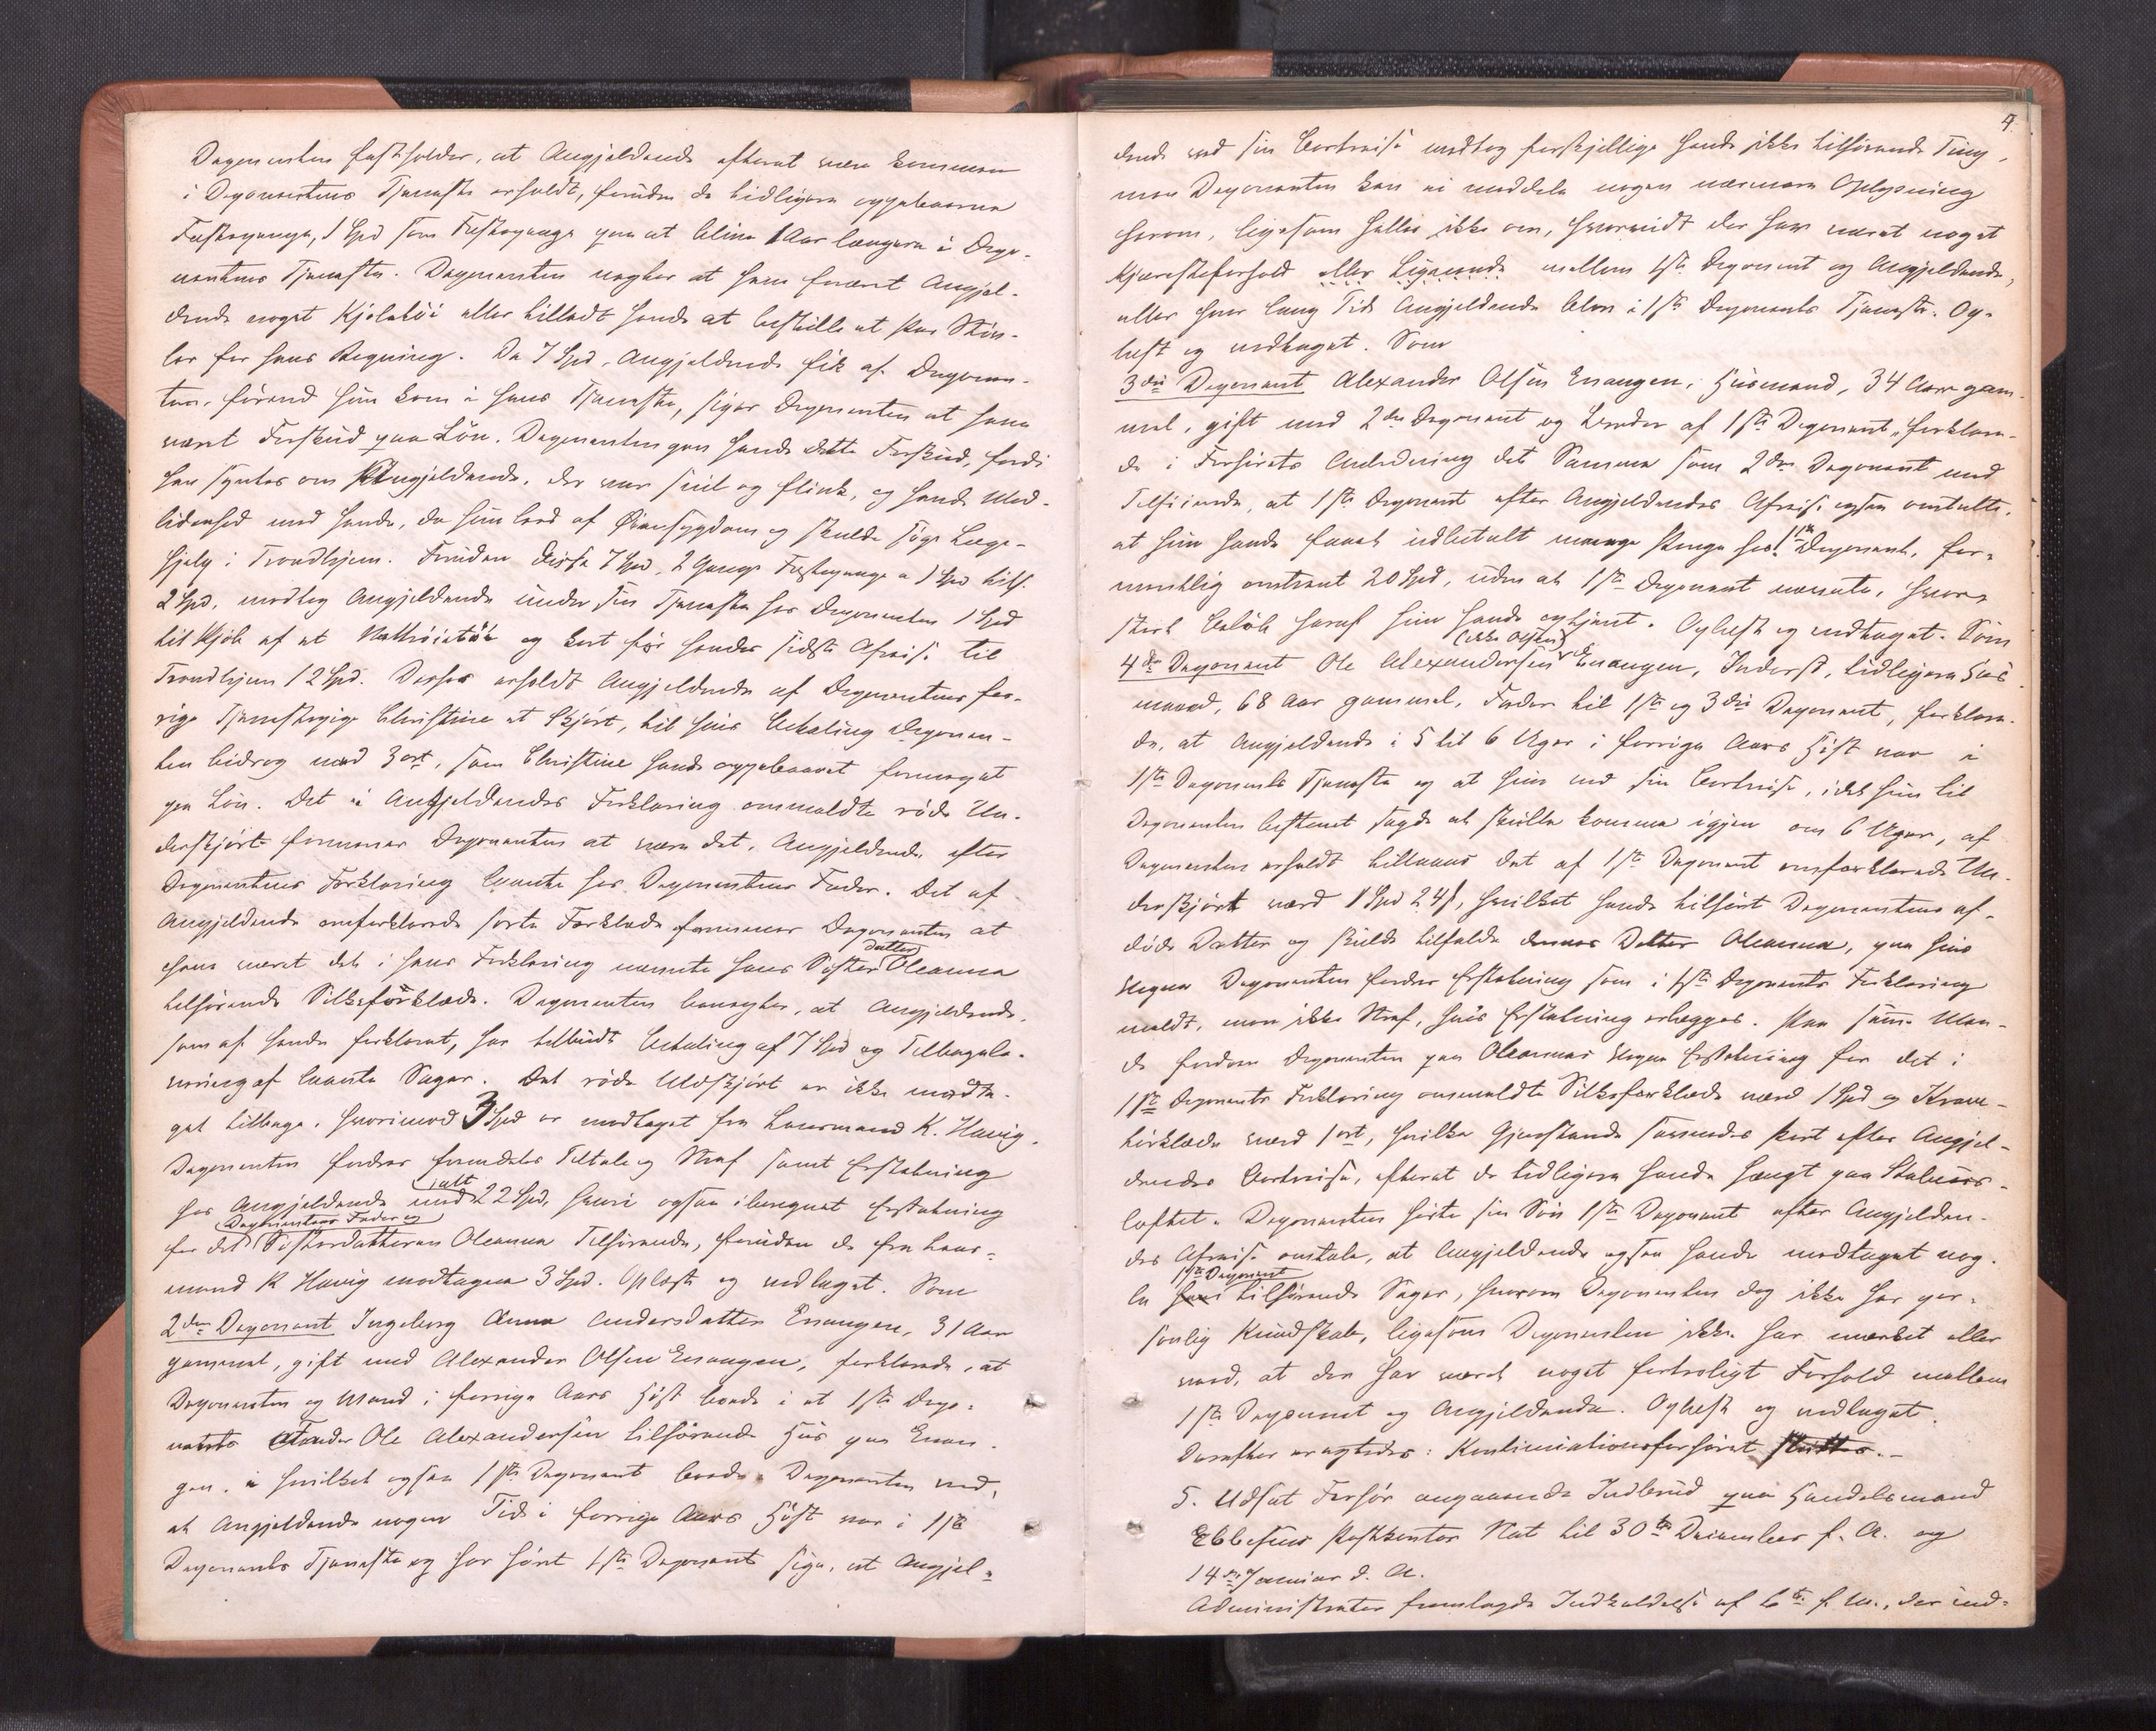 Deponenten fastholder, at Angjeldende efterat være kommen
i Deponentens Tjeneste erholdt, foruden de tidligere oppebaarne
Fæstepenge, 1 Spd som Fæstepenge paa at blive 1 Aar længere i Depo-
nentens Tjeneste. Deponenten negter at have foræret Angjel-
dende noget Kjoletöi eller tilladt hende at bestille et Par Stöv-
ler for hans Regning. De 7 Spd, Angjeldende fik af Deponen-
ten, förend hun kom i hans Tjeneste, siger Deponenten at have
været Forskud paa Lön. Deponenten gav hende dette Forskud, fordi
han syntes om Angjeldende, der var snil og flink, og havde Med-
lidenhed med hende, da hun led af Öiensygdom og skulde söge Læge-
hjelp i Trondhjem. Foruden disse 7 Spd, 2 Gange Fæstepenge a 1 Spd tils.
2 Spd, modtog Angjeldende under sin Tjeneste hos Deponenten 1 Spd
til Kjöb af et Nattröietöi og kort för hendes sidste Afreise til
Trondhjem 12 Spd. Derhos erholdt Angjeldende af Deponentens for-
rige Tjenestepige Christine et Skjört, til hvis Betaling Deponen-
ten bidrog med 3 ort, som Christine havde oppebaaret formeget
paa Lön. Det i Angjeldendes Forklaring ommeldte röde Un-
derskjört formener Deponenten at være det, Angjeldende efter
Deponentens Forklaring laante hos Deponentens Fader. Det af
Angjeldende omforklarede sorte Forklæde formener Deponenten at
have været det i hans Forklaring nævnte hans Söster datter Oleanna
tilhörende Silkeforklæde. Deponenten benegter, at Angjeldende,
som af hende forklaret, har tilbudt Betaling af 7 Spd og Tilbagele-
vering af laante Sager. Det röde Uldskjört er ikke modta-
get tilbage, hvorimod 3 Spd er modtaget fra Lensmand K. Havig.
Deponenten fordrer fremdeles Tiltale og Straf samt Erstatning
hos Angjeldende ialt med 22 Spd, hvori ogsaa iberegnet Erstatning
for det Deponentens Fader og Sösterdatteren Oleanna Tilhörende, foruden de fra Lens-
mand K Havig modtagne 3 Spd. Oplæst og vedtaget. Som
2den Deponent Ingeborg Anna Andersdatter Enangen, 31 Aar
gammel, gift med Alexander Olsen Enangen, forklarede, at
Deponenten og Mand i forrige Aars Höst boede i et 1ste Depo-
nents Fader Ole Alexandersen tilhörende Hus paa Enan-
gen, i hvilket ogsaa 1ste Deponent boede. Deponenten ved,
at Angjeldende nogen Tid i forrige Aars Höst var i 1ste
Deponents Tjeneste og har hört 1ste Deponent sige, at Angjel-
4.
dende ved sin Bortreise medtog forskjellige hende ikke tilhörende Ting,
men Deponenten kan ei meddele nogen nærmere Oplysning
herom, ligesom heller ikke om, hvorvidt der har været noget
Kjæresteforhold eller Lignende mellem 1ste Deponent og Angjeldende,
eller hvor lang Tid Angjeldende blev i 1ste Deponents Tjeneste. Op-
læst og vedtaget. Som
3die Deponent Alexander Olsen Enangen, Husmand, 34 Aar gam-
mel, gift med 2den Deponent og Broder af 1ste Deponent, forklare-
de i Forhörets Anledning det Samme som 2den Deponent med
Tilföiende, at 1ste Deponent efter Angjeldendes Afreise ogsaa omtalte,
at hun havde faaet udbetalt mange Penge hos 1ste Deponent, for-
mentlig omtrent 20 Spd, uden at 1ste Deponent nævnte, hvor-
stort Belöb heraf hun havde optjent. Oplæst og vedtaget. Som
4de Deponent Ole Alexandersen (ikke Olsen) Enangen, Inderst, tidligere Hus-
mand, 68 Aar gammel, Fader til 1ste og 3die Deponent, forklare-
de, at Angjeldende i 5 til 6 Uger i forrige Aars Höst var i
1ste Deponents Tjeneste og at hun ved sin Bortreise, idet hun til
Deponenten bestemt sagde at skulle komme igjen om 6 Uger, af
Deponenten erholdt tillaans det af 1ste Deponent omforklarede Un-
derskjört værd 1 Spd 24 s, hvilket havde tilhört Deponentens af-
döde Datter og skulde tilfalde dennes Datter Oleanna, paa hvis
Vegne Deponenten fordrer Erstatning som i 1ste Deponents Forklaring
meldt, men ikke Straf, hvis Erstatning erlægges. Paa samme Maa-
de fordrer Deponenten paa Oleannas Vegne Erstatning for det i
1ste Deponents Forklaring ommeldte Silkeforklæde værd 1 Spd og Krave-
törklæde værd 1 ort, hvilke Gjenstande savnedes kort efter Angjel-
dendes Bortreise, efterat de tidligere havde hængt paa Stabuurs-
loftet. Deponenten hörte sin Sön 1ste Deponent efter Angjelden-
des Afreise omtale, at Angjeldende ogsaa havde medtaget nog-
le 1ste Deponent tilhörende Sager, hvorom Deponenten dog ikke har per-
sonlig Kundskab, ligesom Deponenten ikke har mærket eller
ved, at der har været noget fortroligt Forhold mellem
1ste Deponent og Angjeldende. Oplæst og vedtaget.
Derefter eragtedes: Kontinuationsforhöret sluttes.-
5. Udsat Forhör angaaende Indbrud paa Handelsmand
Ebbesens Postkontor Nat til 30te December f. A. og
14de Januar d. A.
Administrator fremlagde Indkaldelse af 6te f. M., der ind-